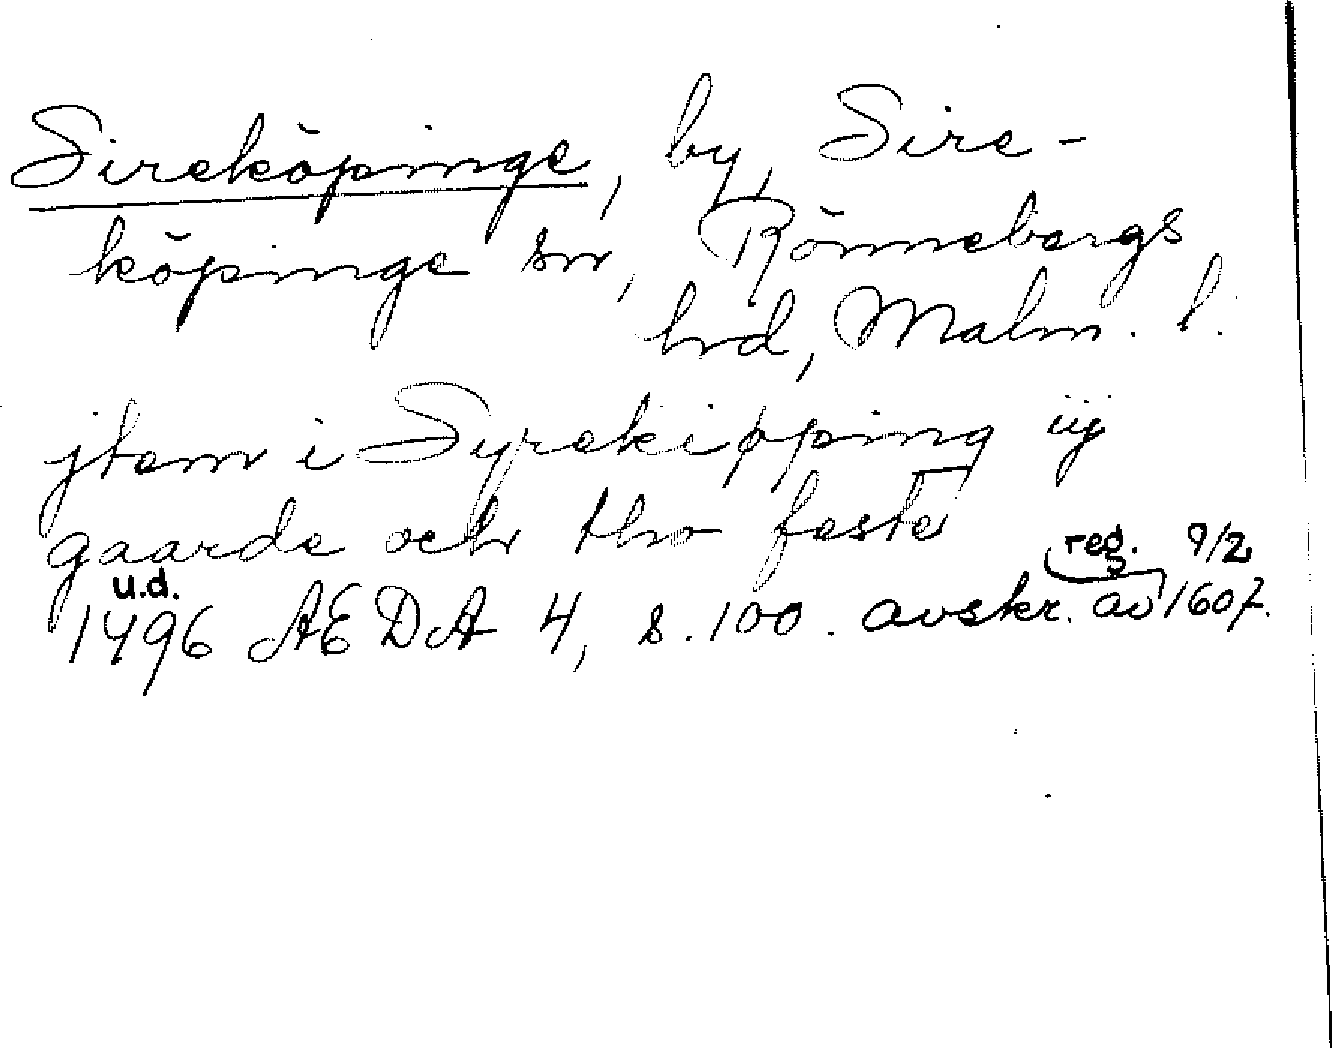 Sireköpinge, by, Sire-
köpinge sn, Rönnebergs
hrd, Malm. l.
jtem i Syrekipping iij
gaarde och tho feste
u.d. reg. 9/2
1496 AEDA 4, s. 100. avskr. av 1607.